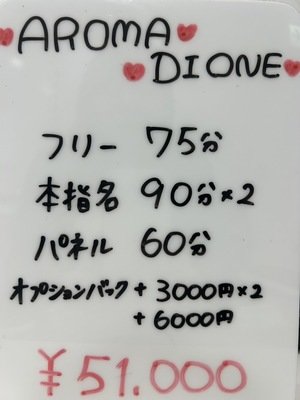 AROMA
DIONE
フリー 75分
本指名 90分×2
パネル 60分
オプションバック + 3000円×2
+ 6000円
¥51.000